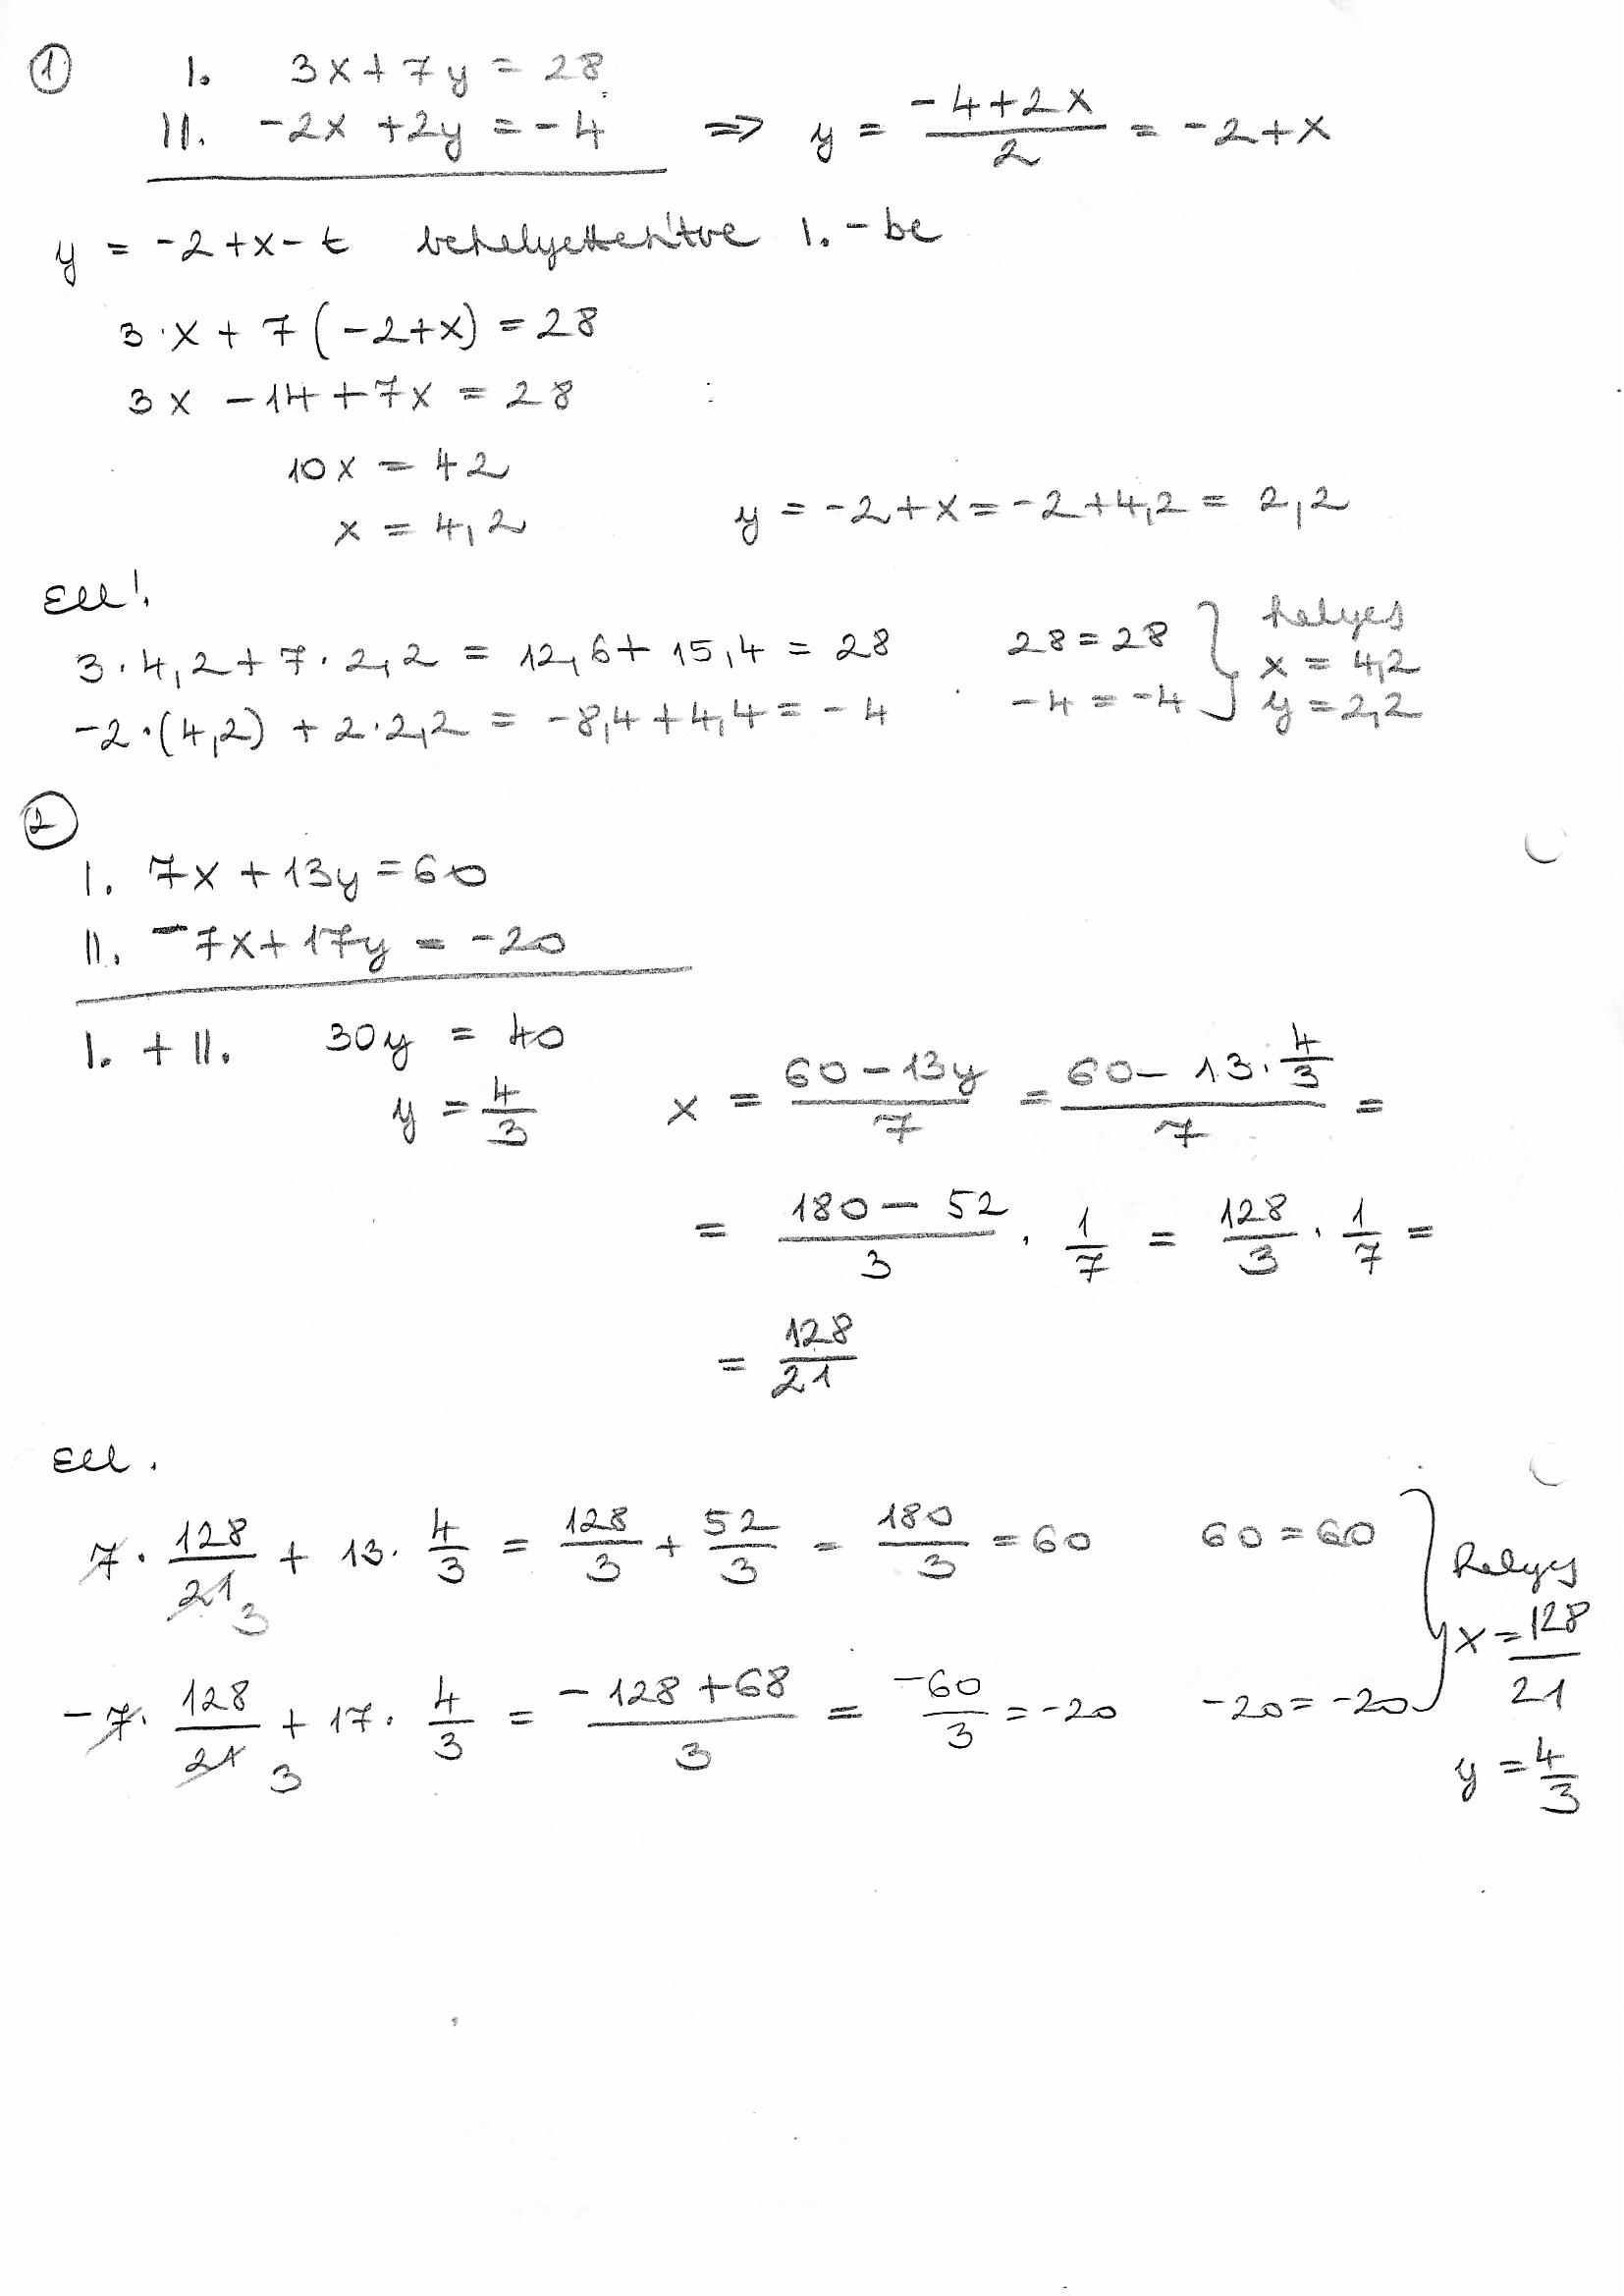 ① I. 3x+7y = 28
II. -2x +2y = -4 => y = (-4+2x)/2 = -2+x
y = -2+x-t behelyettesítve I.-be
3·x + 7(-2+x) = 28
3x -14+7x = 28
10x = 42
x = 4,2 y = -2+x = -2+4,2 = 2,2
Ell.
3·4,2+7·2,2 = 12,6+15,4 = 28 28=28 } helyes
x = 4,2
-2·(4,2) + 2·2,2 = -8,4+4,4 = -4 -4=-4 y=2,2
②
I. 7x+13y=60
II. -7x+17y = -20
I. + II. 30y = 40
y = 4/3 x = (60-13y)/7 = (60-13·4/3)/7 =
= (180-52)/3 · 1/7 = 128/3 · 1/7 =
= 128/21
Ell.
7·128/21 3 + 13·4/3 = 128/3 + 52/3 = 180/3 = 60 60=60 } helyes
x = 128/21
-7·128/21 3 + 17·4/3 = (-128+68)/3 = -60/3 = -20 -20=-20
y = 4/3